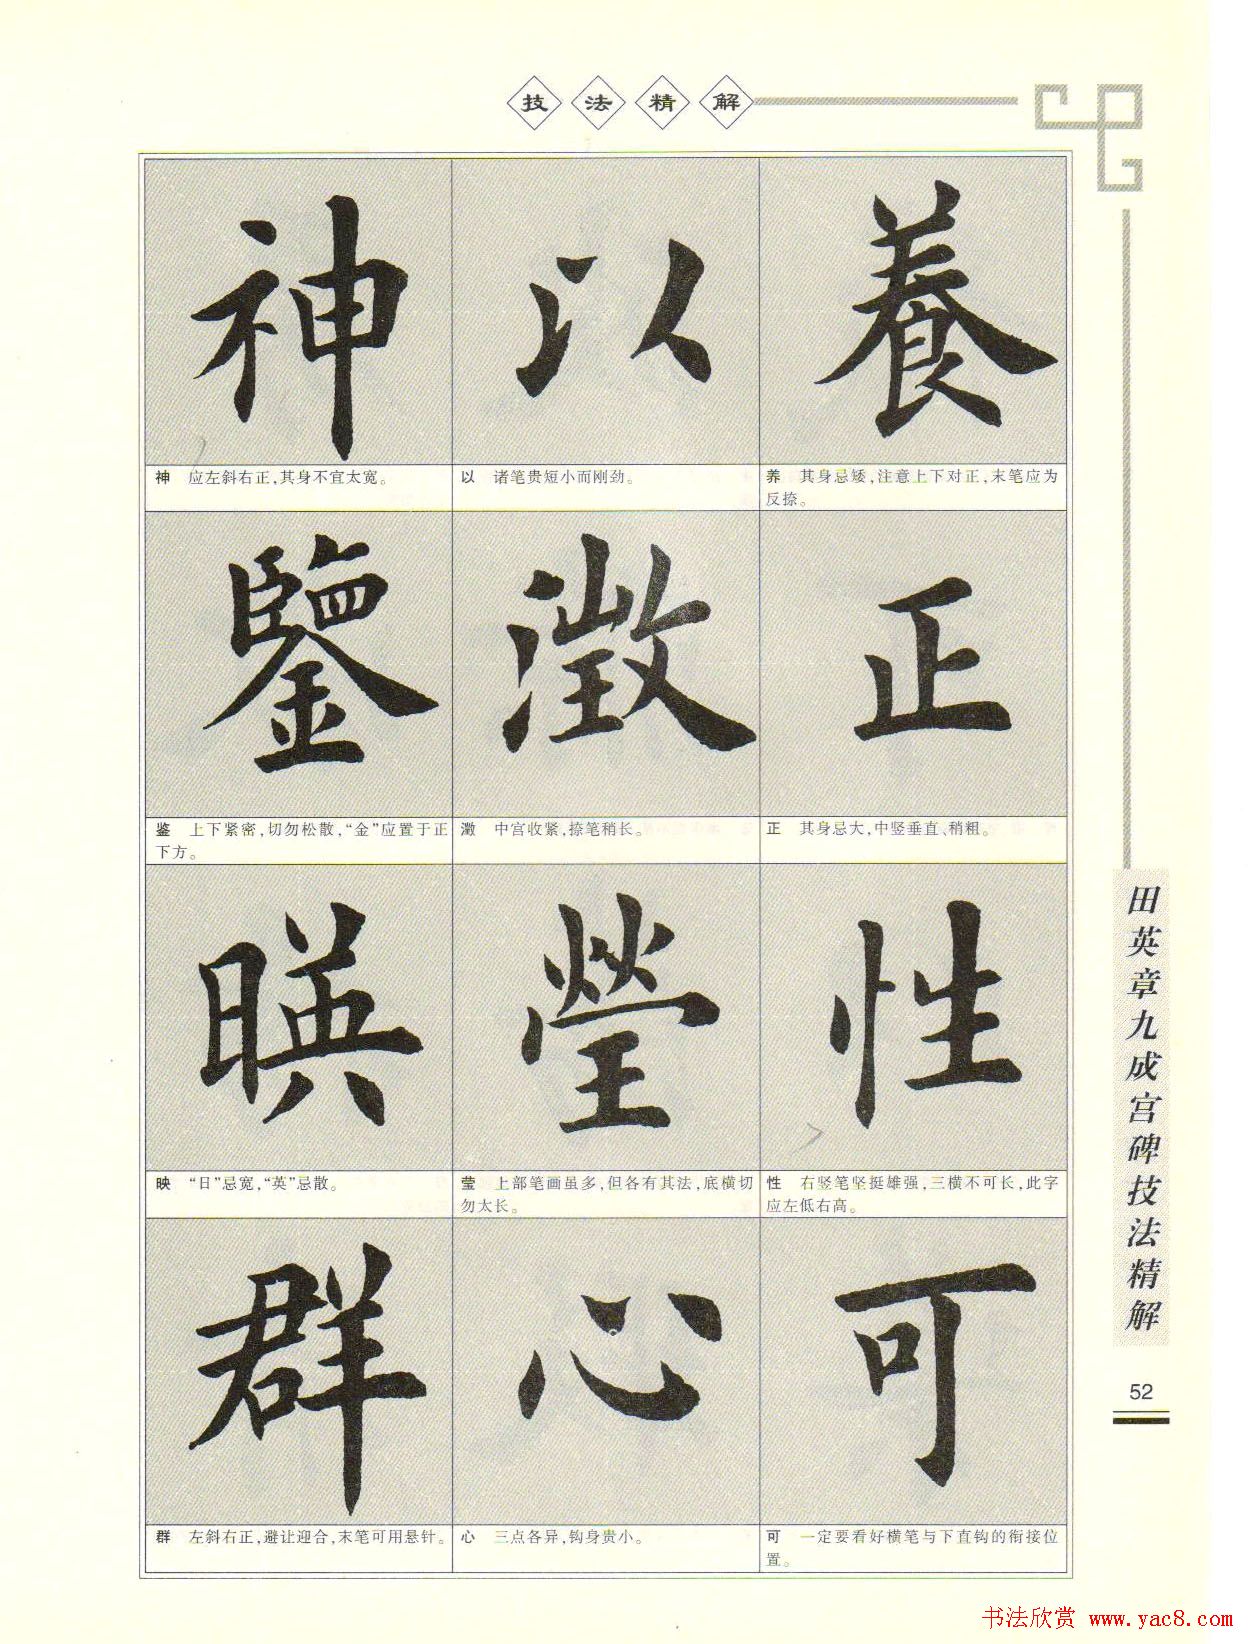 技法精解
神 以 養
神 应左斜右正,其身不宜太宽。
以 诸笔贵短小而刚劲。
养 其身忌矮,注意上下对正,末笔应为
反捺。
鑒 澂 正
鉴 上下紧密,切勿松散,“金”应置于正
下方。
澂 中宫收紧,捺笔稍长。
正 其身忌大,中竖垂直、稍粗。
暎 瑩 性
映 “日”忌宽,“英”忌散。
莹 上部笔画虽多,但各有其法,底横切
勿太长。
性 右竖笔坚挺雄强,三横不可长,此字
应左低右高。
群 心 可
群 左斜右正,避让迎合,末笔可用悬针。
心 三点各异,钩身贵小。
可 一定要看好横笔与下直钩的衔接位
置。
田英章九成宫碑技法精解
52
书法欣赏 www.yac8.com